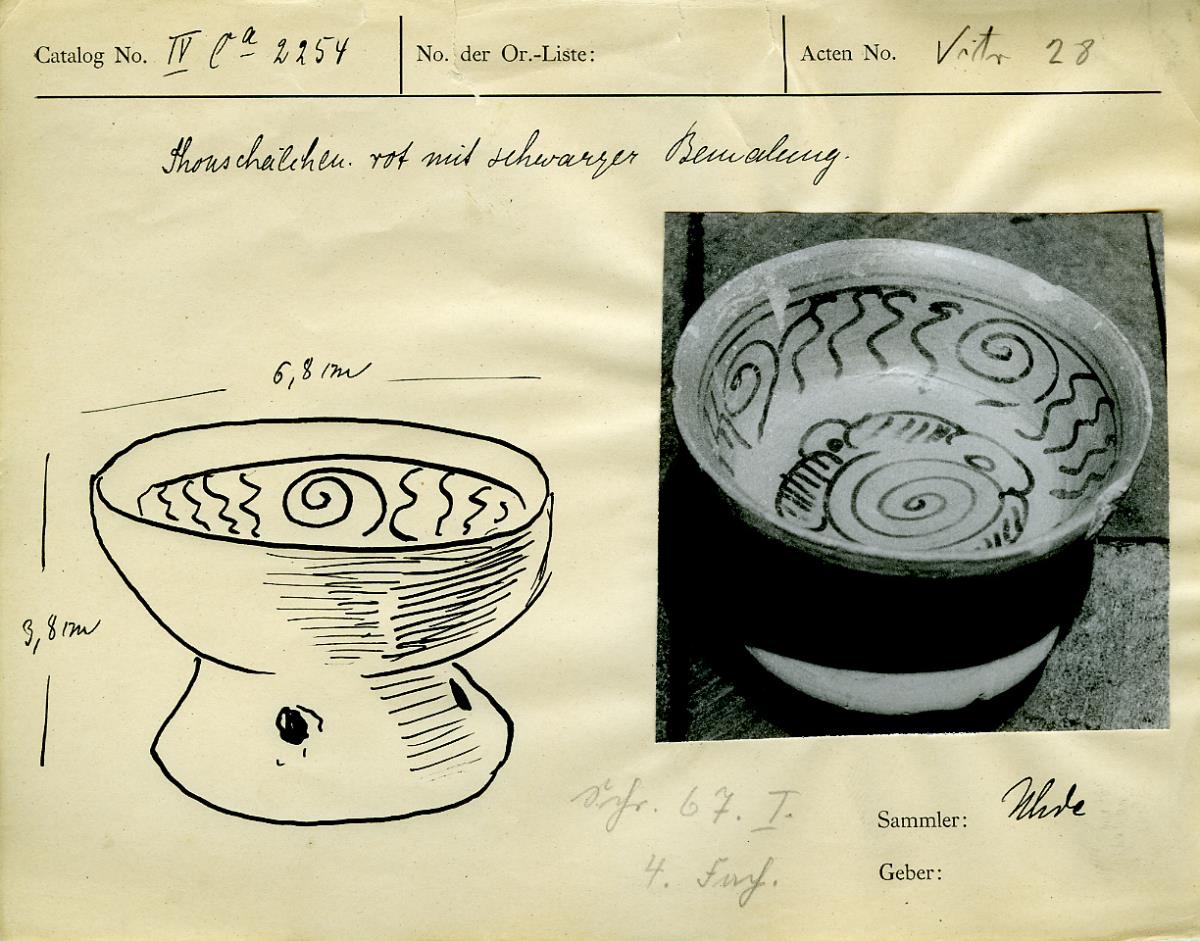 Catalog No. IV Ca 2254
No. der Or.-Liste:
Acten No. Vitr 28
Thonschälchen. rot mit schwarzer Bemalung.
6,8 cm
3,8 cm
Schr. 67. I.
4. Fach.
Sammler: Uhde
Geber: